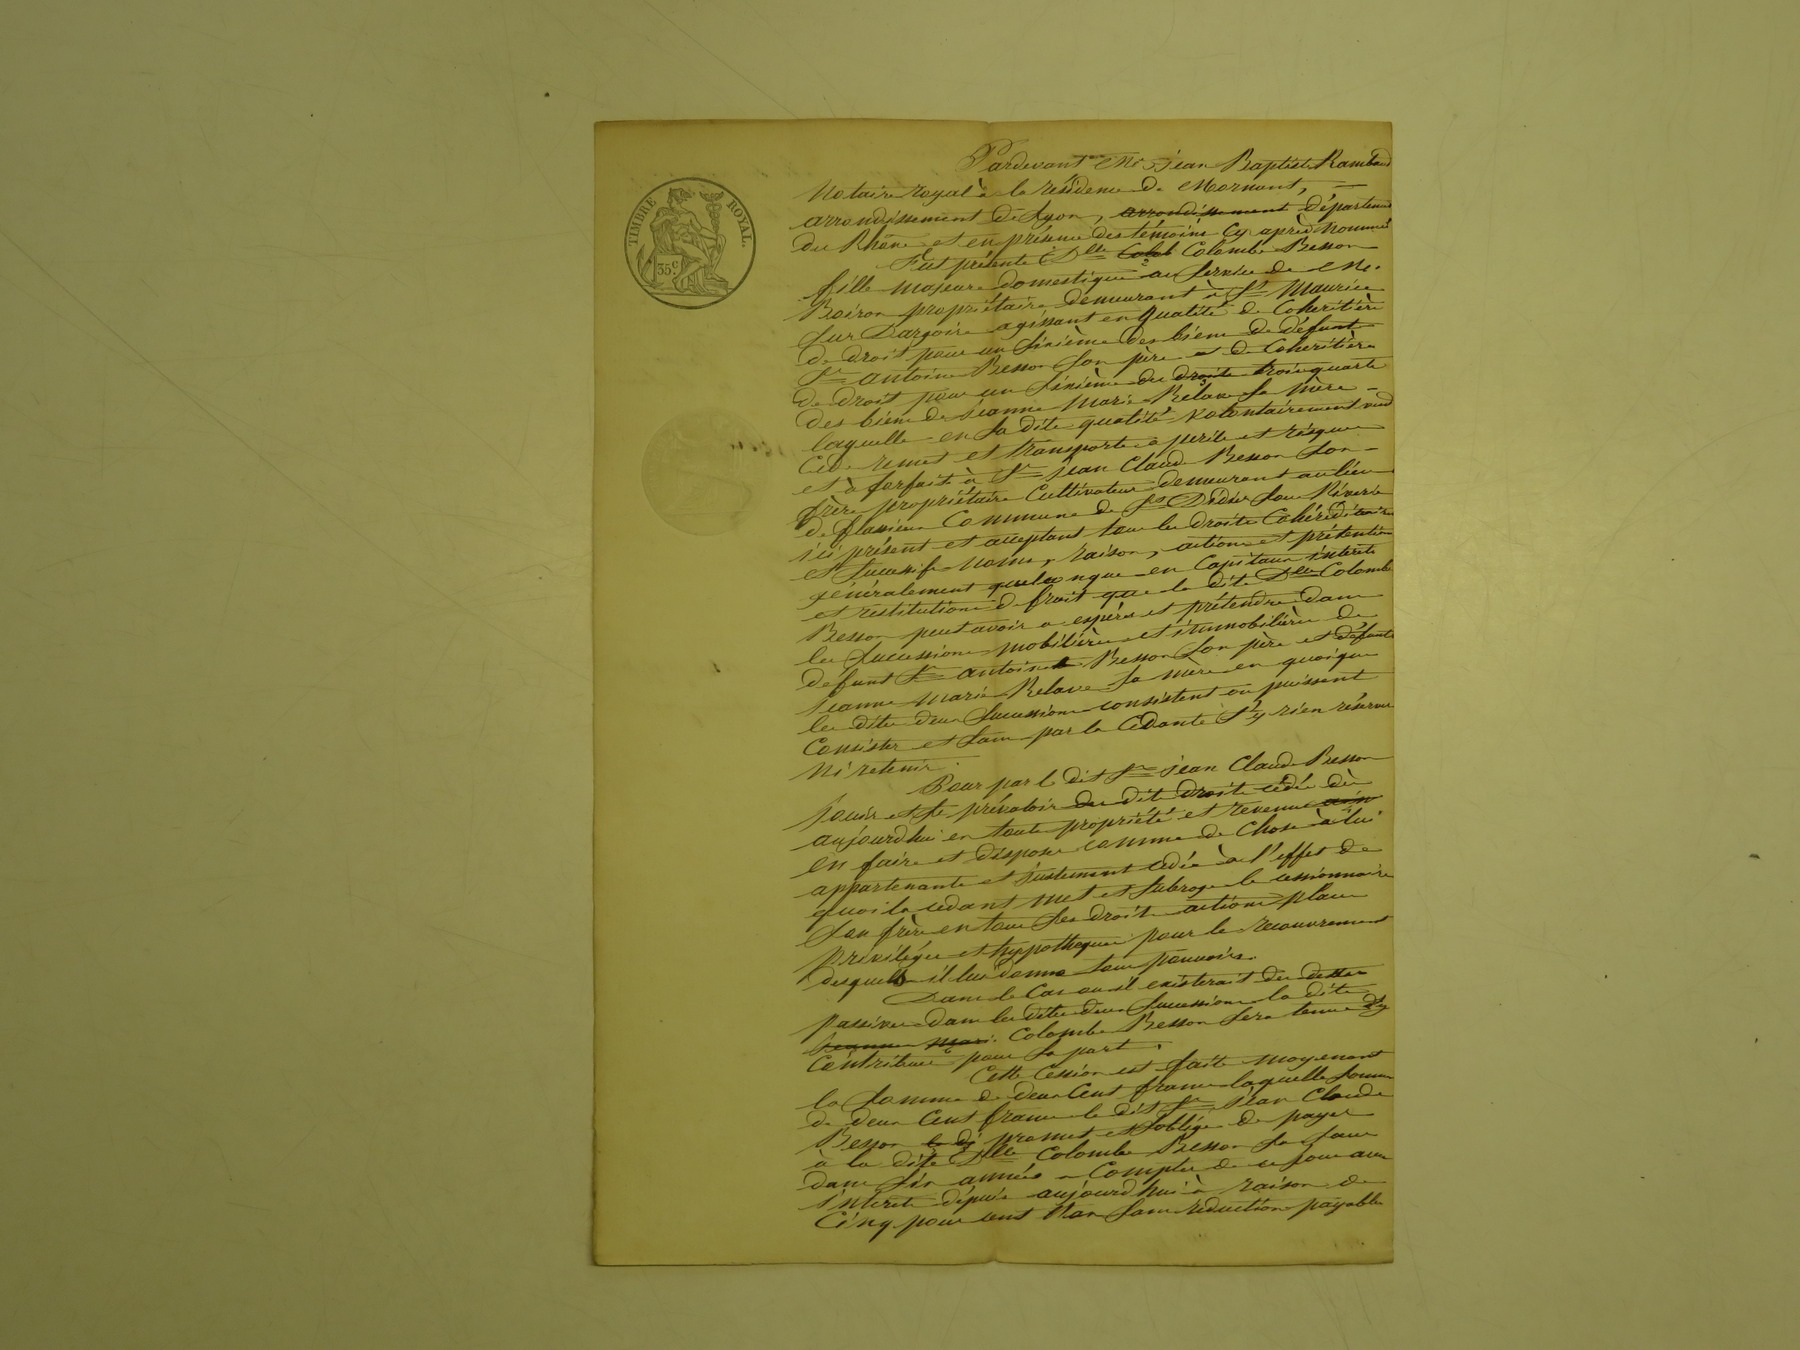 TIMBRE ROYAL.
35 c.
Pardevant Me Jean Baptiste Rambaud
Notaire royal à la résidence de Mornant, —
arrondissement de Lyon, arrondissement départemt
du Rhône et en présence des témoins cy après nommés
Fut présente Dlle Colob Colombe Besson
fille majeure domestique au service de Mr.
Boiron propriétaire demeurant à St Maurice
sur Dargoire agissant en qualité de Coheritière
de droit pour un sixième des biens de défunt
Sr antoine Besson son père et de Coheritière
de droit pour un sixième des droits trois quarts
des biens de jeanne Marie Relave sa mère —
laquelle en sa dite qualité volontairement vend
Cède remet et transporte à perils et risques
et à forfait à Sr jean Claude Besson son —
frère propriétaire Cultivateur demeurant au lieu
de flassieux Commune de St Didier sous Riverie
ici présent et acceptant tous les droits Cohéréditaires
et Successifs noms, raisons, actions et prétentions
généralement quelconque en Capitaux interets
et restitutions de fruit que la dite Dlle Colombe
Besson peut avoir a espérer et prétendre dans
les Successions mobilières et immobilières de
defunt Sr antoine Besson son père et défunte
jeanne Marie Relave sa mère en quoique
les dites deux Successions consistent ou puissent
Consister et sans par la Cédante s'y rien réserver
ni retenir.
Pour par le dit Sr jean Claude Besson
jouir et se prévaloir des dits droits cédés dès
aujourdhui en toute propriété et revenus ain
en faire et disposer comme de Chose à lui
appartenante et justement cédée à l'effet de
quoi la cédant met et subroge le cessionnaire
son frère en tous ses droits actions places
privilèges et hypothèques pour le recouvrement
desquels il lui donne tous pouvoirs.
Dans le Cas ou il existerait des dettes
passives dans les dites deux Successions la dite
jeanne Mari Colombe Besson sera tenue d'y
Contribuer pour sa part.
Cette Cession est faite moyenant
la somme de deux Cent francs laquelle somme
de deux Cent francs le dit Sr jean Claude
Besson le di promet et s'oblige de payer
à la dite Dlle Colombe Besson sa sœur
dans six années a Compter de ce jour avec
interets depuis aujourdhui à raison de
Cinq pour cent l'an sans réduction payable